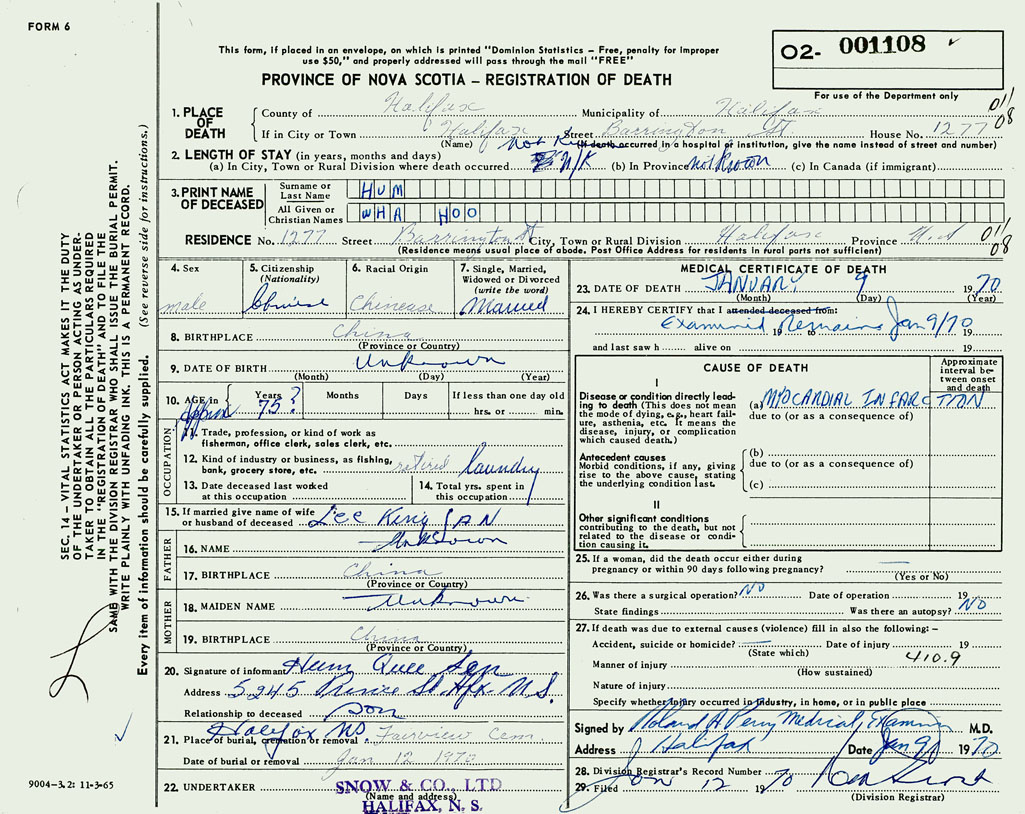 FORM 6
This form, if placed in an envelope, on which is printed "Dominion Statistics – Free, penalty for improper
use $50," and properly addressed will pass through the mail "FREE"
PROVINCE OF NOVA SCOTIA – REGISTRATION OF DEATH
02- 001108
For use of the Department only
1. PLACE OF DEATH
County of Halifax Municipality of Halifax
011
08
If in City or Town Halifax Street Barrington St House No. 1277
(Name) (If death occurred in a hospital or institution, give the name instead of street and number)
2. LENGTH OF STAY (in years, months and days) Not
(a) In City, Town or Rural Division where death occurred N/K (b) In Province Not Known (c) In Canada (if immigrant)
3. PRINT NAME OF DECEASED
Surname or Last Name HUM
All Given or Christian Names WHA HOO
RESIDENCE No. 1277 Street Barrington St City, Town or Rural Division Halifax Province N.S
011
08
(Residence means usual place of abode. Post Office Address for residents in rural parts not sufficient)
4. Sex male
5. Citizenship (Nationality) Chinese
6. Racial Origin Chinease
7. Single, Married, Widowed or Divorced (write the word) Married
8. BIRTHPLACE China
(Province or Country)
9. DATE OF BIRTH Unknown
(Month) (Day) (Year)
10. AGE in Approx Years 75? Months Days If less than one day old hrs. or min.
OCCUPATION
11. Trade, profession, or kind of work as
fisherman, office clerk, sales clerk, etc.
12. Kind of industry or business, as fishing,
bank, grocery store, etc. retired laundry
13. Date deceased last worked
at this occupation
14. Total yrs. spent in
this occupation
15. If married give name of wife
or husband of deceased Lee King SAN
FATHER
16. NAME Unknown
17. BIRTHPLACE China
(Province or Country)
MOTHER
18. MAIDEN NAME Unknown
19. BIRTHPLACE China
(Province or Country)
20. Signature of informant Hum Quee Sen
Address 5245 Prince St. Hfx. N.S.
Relationship to deceased son
Halifax NS
21. Place of burial, cremation or removal Fairview Cem.
Date of burial or removal Jan 12 1970
22. UNDERTAKER SNOW & CO., LTD
(Name and address)
HALIFAX, N. S.
MEDICAL CERTIFICATE OF DEATH
23. DATE OF DEATH JANUARY 9 1970
(Month) (Day) (Year)
24. I HEREBY CERTIFY that I attended deceased from:
Examined Remains Jan 9/70 19
and last saw h alive on 19
CAUSE OF DEATH
Approximate interval between onset and death
I
Disease or condition directly leading to death (This does not mean the mode of dying, e.g., heart failure, asthenia, etc. It means the disease, injury, or complication which caused death.)
(a) MYOCARDIAL INFARCTION
due to (or as a consequence of)
Antecedent causes
Morbid conditions, if any, giving rise to the above cause, stating the underlying condition last.
(b)
due to (or as a consequence of)
(c)
II
Other significant conditions
contributing to the death, but not related to the disease or condition causing it.
25. If a woman, did the death occur either during
pregnancy or within 90 days following pregnancy?
(Yes or No)
26. Was there a surgical operation? NO Date of operation 19
State findings Was there an autopsy? NO
27. If death was due to external causes (violence) fill in also the following: –
Accident, suicide or homicide? Date of injury 19
(State which) 410.9
Manner of injury
(How sustained)
Nature of injury
Specify whether injury occurred in industry, in home, or in public place
Signed by Roland A Perry Medical Examiner M.D.
Address Halifax Date Jan 9 1970
28. Division Registrar's Record Number
29. Filed Jan 12 1970
(Division Registrar)
SEC. 14 – VITAL STATISTICS ACT MAKES IT THE DUTY
OF THE UNDERTAKER OR PERSON ACTING AS UNDER-
TAKER TO OBTAIN ALL THE PARTICULARS REQUIRED
IN THE "REGISTRATION OF DEATH" AND TO FILE THE
SAME WITH THE DIVISION REGISTRAR WHO SHALL ISSUE THE BURIAL PERMIT.
WRITE PLAINLY WITH UNFADING INK. THIS IS A PERMANENT RECORD.
Every item of information should be carefully supplied. (See reverse side for instructions.)
9004-3.2: 11-3-65